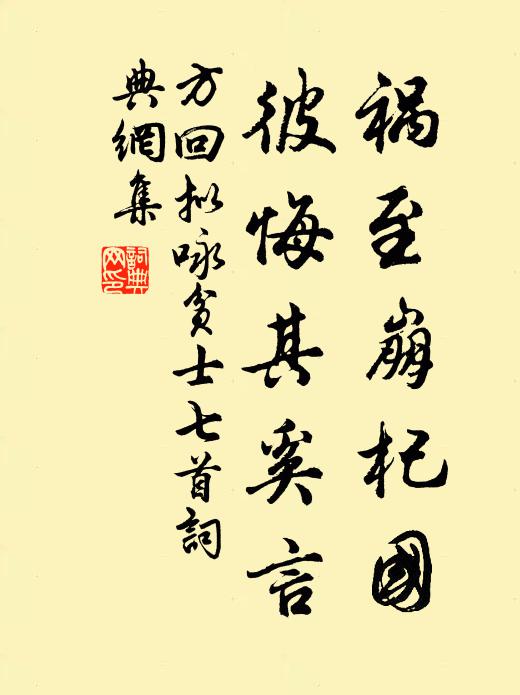 禍至崩杞國
彼悔其奚言
方回拟咏貧士七首詞
典網集
詞典
网印